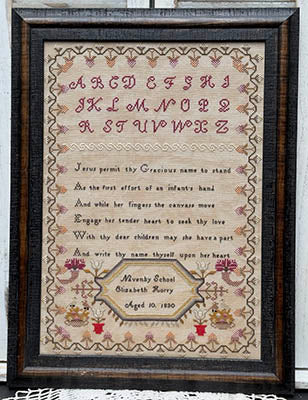 A B C D E F G H I
J K L M N O P Q
R S T U V W X Z
Jesus permit thy Gracious name to stand
As the first effort of an infant's hand
And while her fingers the canvass move
Engage her tender heart to seek thy love
With thy dear children may she have a part
And write thy name thyself upon her heart
Navenby School
Elizabeth
Aged 10, 1830